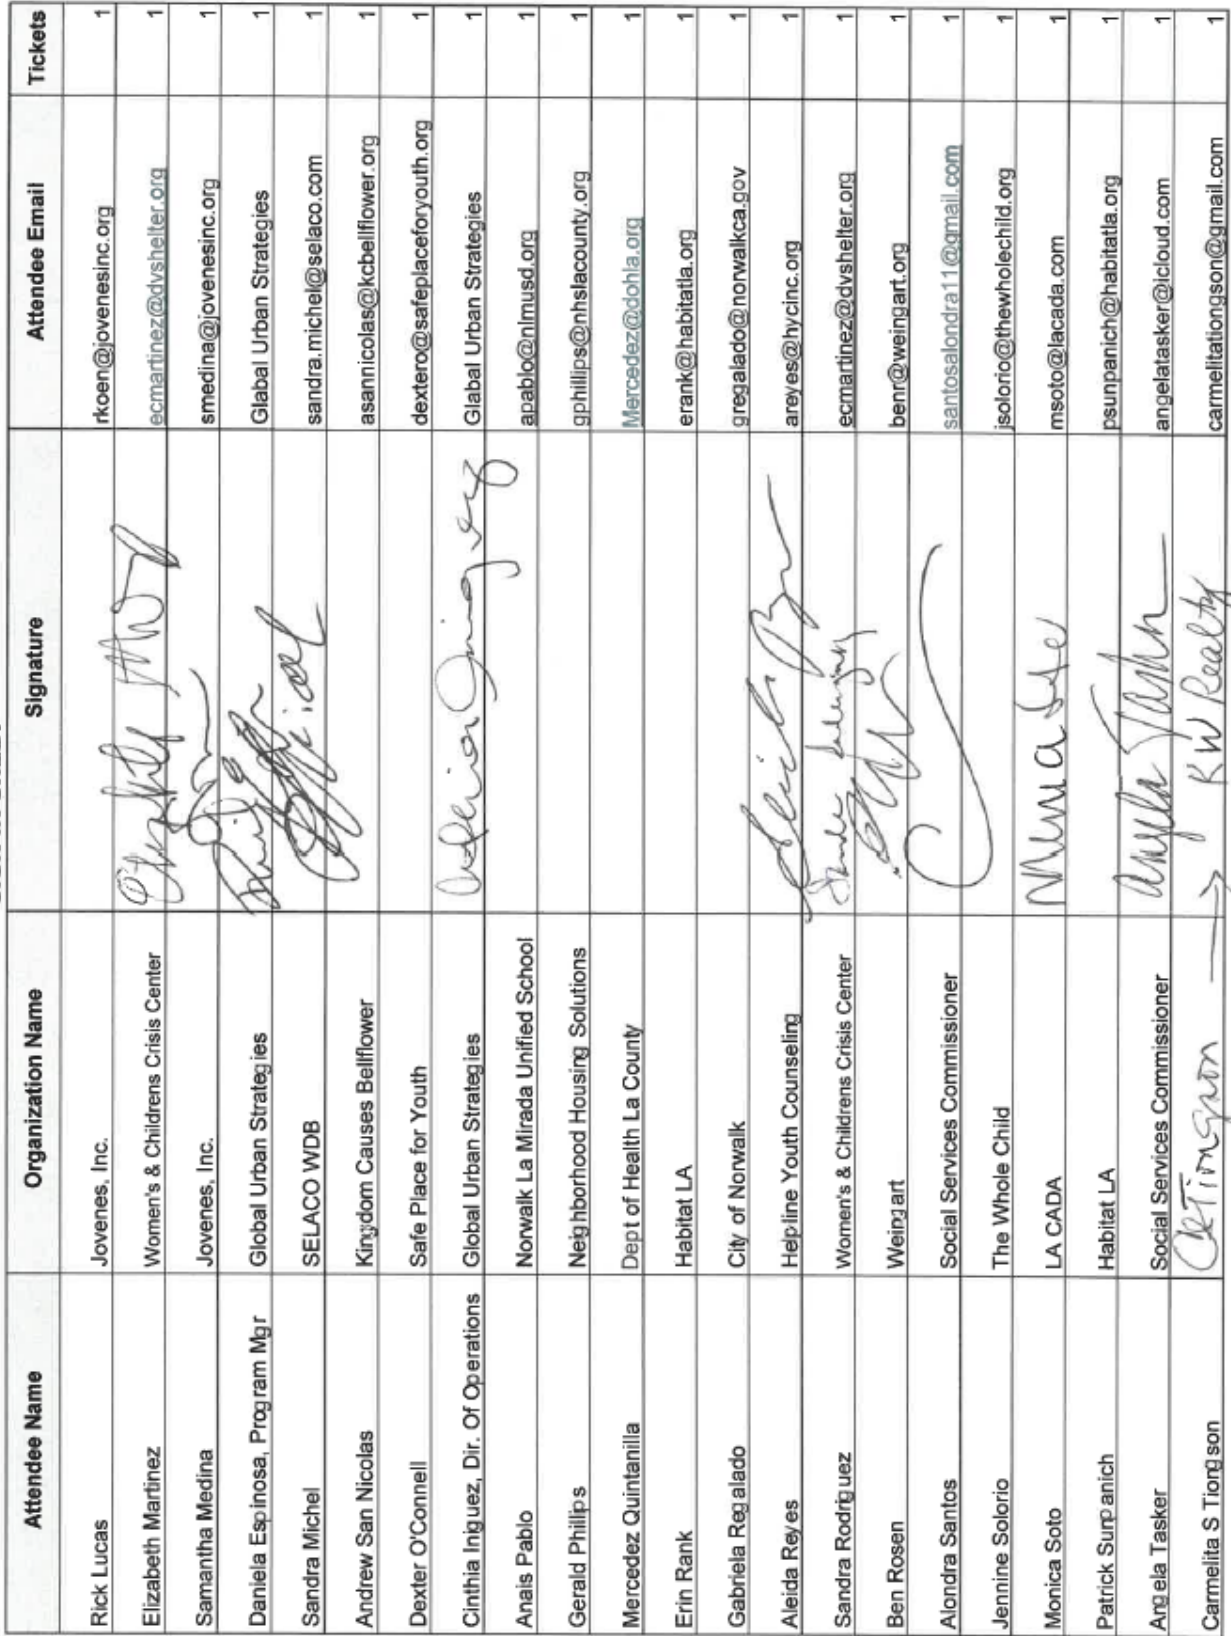 Attendee Name Organization Name Signature Attendee Email Tickets
Rick Lucas Jovenes, Inc. rkoen@jovenesinc.org 1
Elizabeth Martinez Women's & Childrens Crisis Center ecmartinez@dvshelter.org 1
Samantha Medina Jovenes, Inc. smedina@jovenesinc.org 1
Daniela Espinosa, Program Mgr Global Urban Strategies Glabal Urban Strategies 1
Sandra Michel SELACO WDB sandra.michel@selaco.com 1
Andrew San Nicolas Kingdom Causes Bellflower asannicolas@kcbellflower.org 1
Dexter O'Connell Safe Place for Youth dextero@safeplaceforyouth.org 1
Cinthia Iniguez, Dir. Of Operations Global Urban Strategies Glabal Urban Strategies 1
Anais Pablo Norwalk La Mirada Unified School apablo@nlmusd.org 1
Gerald Phillips Neighborhood Housing Solutions gphillips@nhslacounty.org 1
Mercedez Quintanilla Dept of Health La County Mercedez@dohla.org 1
Erin Rank Habitat LA erank@habitatla.org 1
Gabriela Regalado City of Norwalk gregalado@norwalkca.gov 1
Aleida Reyes Helpline Youth Counseling areyes@hycinc.org 1
Sandra Rodriguez Women's & Childrens Crisis Center ecmartinez@dvshelter.org 1
Ben Rosen Weingart benr@weingart.org 1
Alondra Santos Social Services Commissioner santosalondra11@gmail.com 1
Jennine Solorio The Whole Child jsolorio@thewholechild.org 1
Monica Soto LA CADA jmsoto@lacada.com 1
Patrick Sunpanich Habitat LA psunpanich@habitatla.org 1
Angela Tasker Social Services Commissioner Angela Tasker angelatasker@icloud.com 1
Carmelita S Tiongson CSTiongson → KW Realty carmelitationgson@gmail.com 1